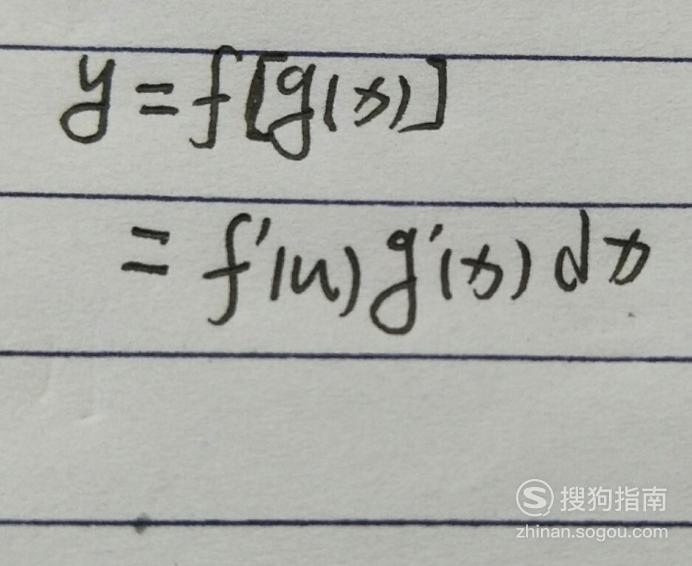 y=f[g(x)]
=f'(u)g'(x)dx
搜狗指南
zhinan.sogou.com